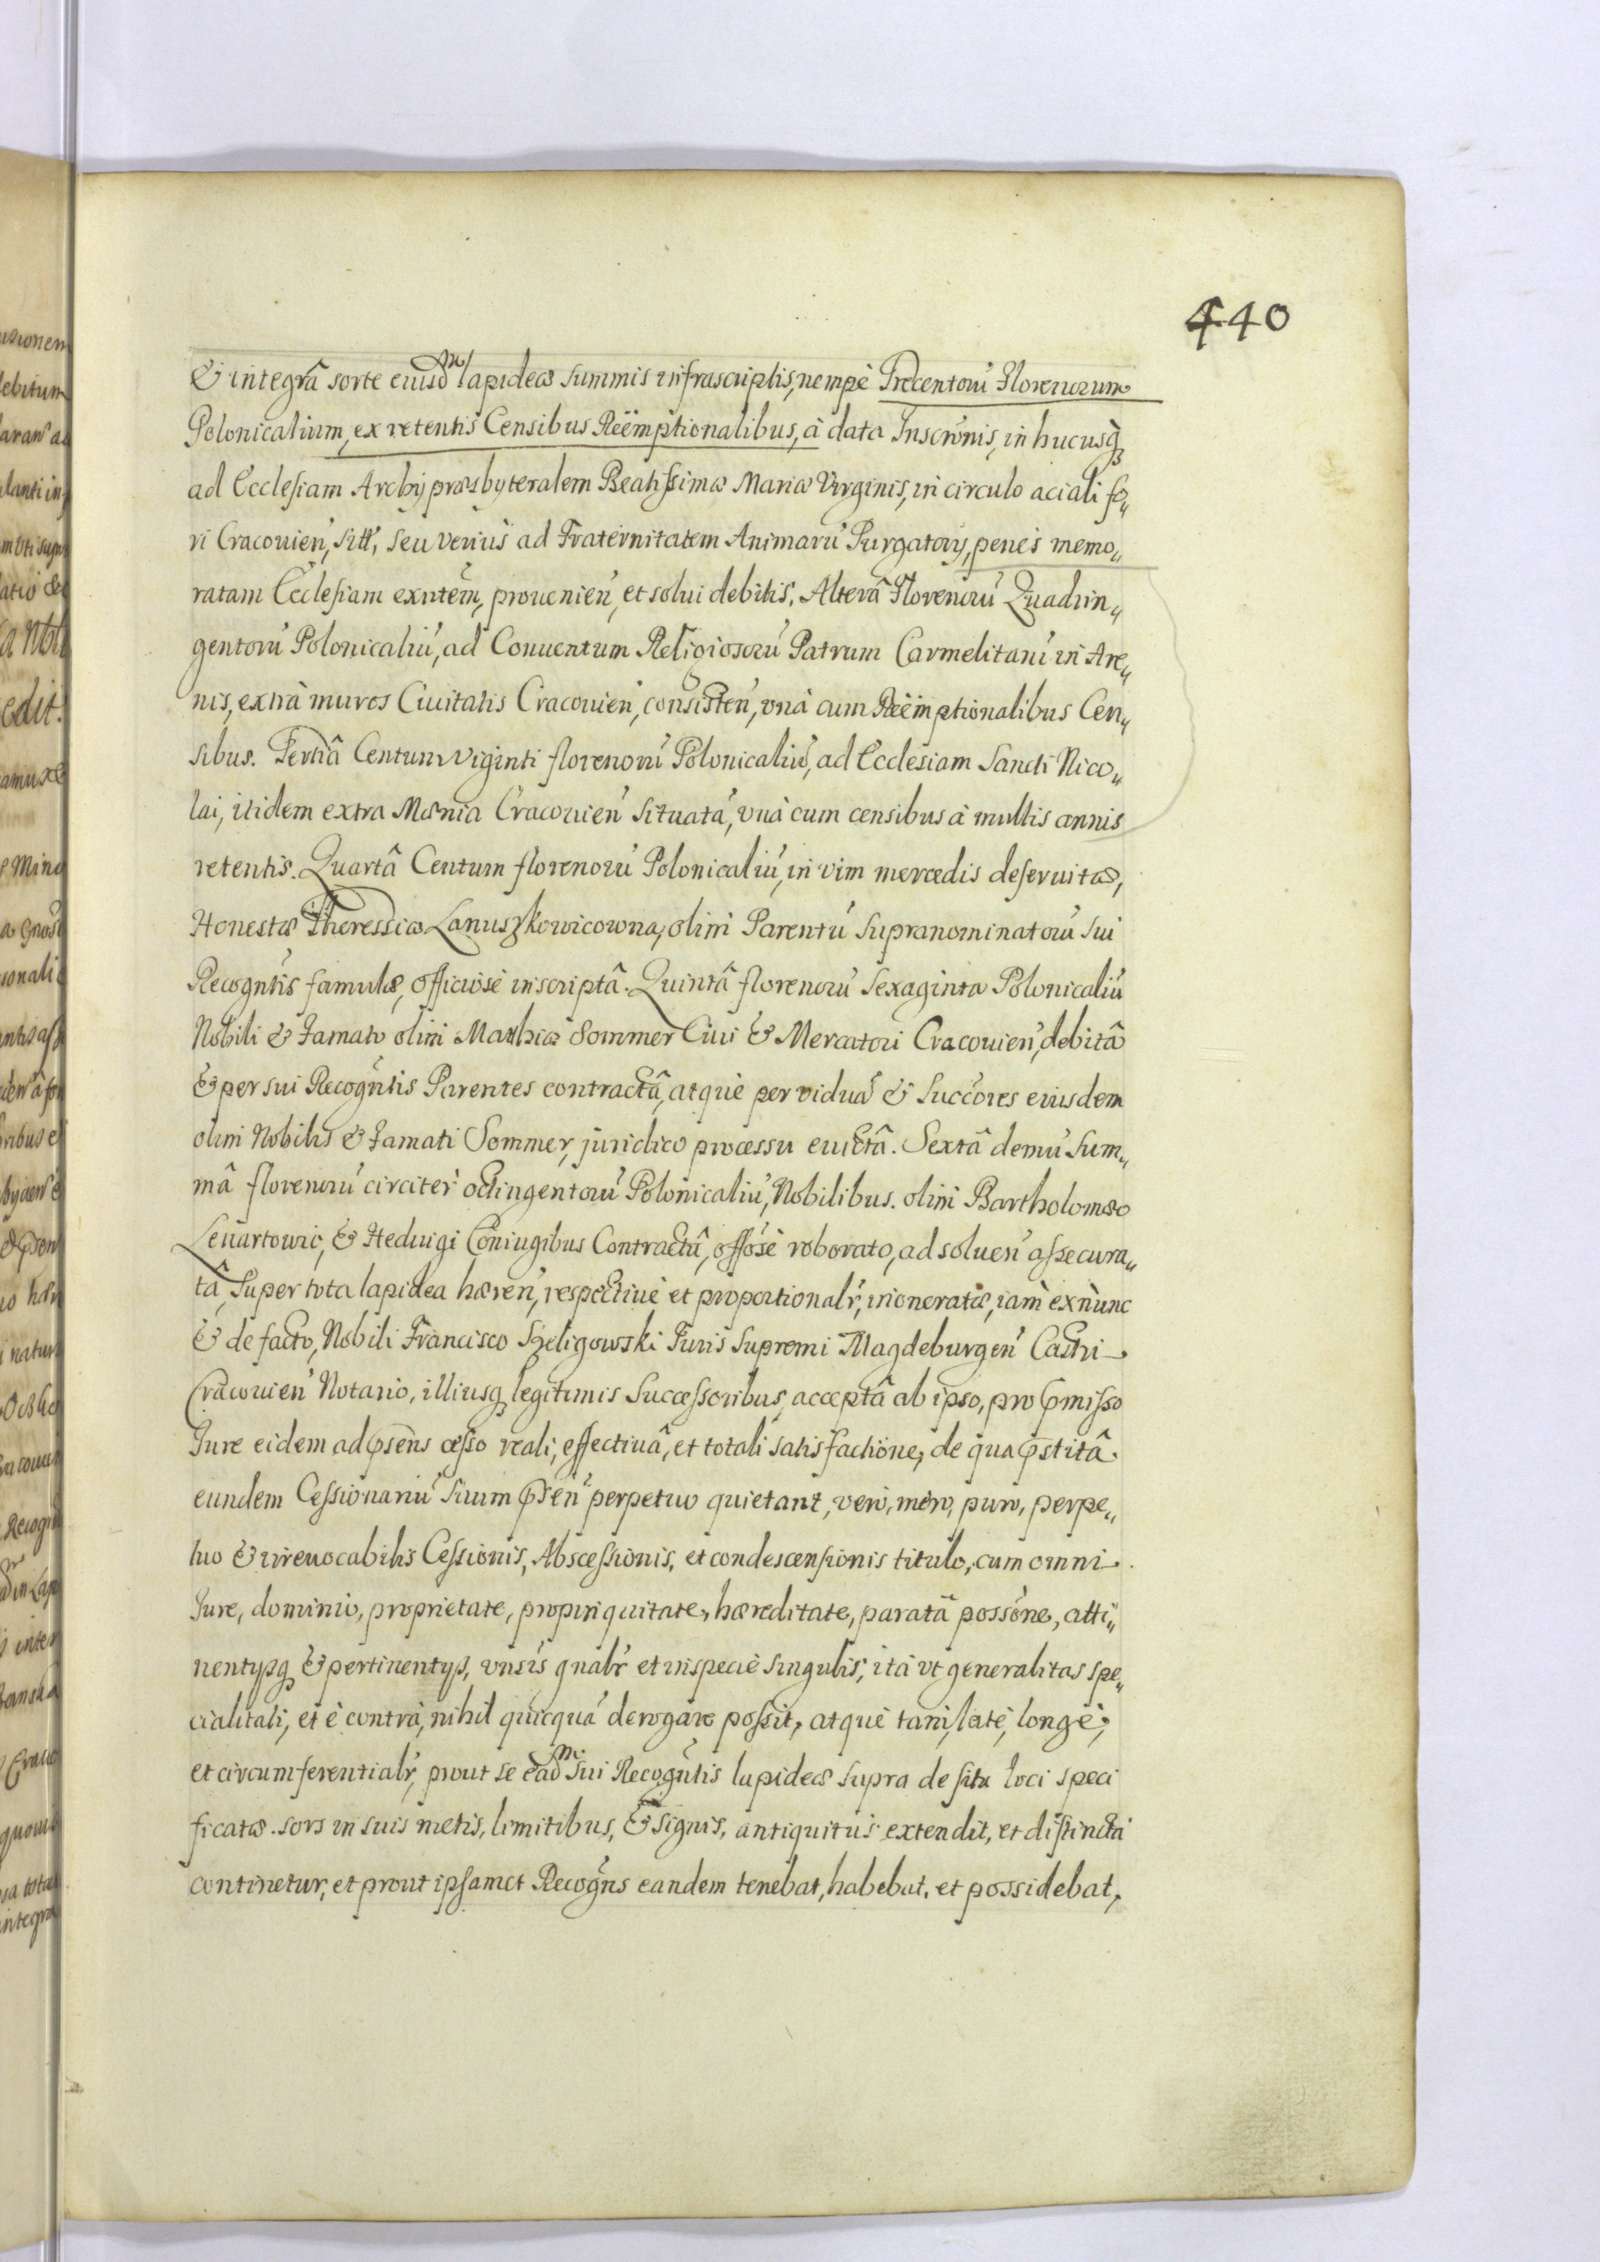 440
& integrâ sorte eiusdm lapideæ summis infrascriptis, nempè Trecentorũ Florenorum
Polonicalium, ex retentis Censibus Reëmptionalibus, à data Inscrõnis, in hucusq
ad Ecclesiam Archypræsbyteralem Beatissimæ Mariæ Virginis, in circulo aciali fo„
ri Cracouien̉, sitt, seu verius ad Fraternitatem Animarũ Purgatorÿ, penes memo„
ratam Ecclesiam exñtem, prouenien̉, et solui debitis. Alterâ Florenorũ Quadrin„
gentorũ Polonicaliũ, ad Conuentum Religiosorũ Patrum Carmelitanũ in Are„
nis, extrà muros Ciuitatis Cracouien̉, consisten̉, unà cum Reëmptionalibus Cen„
sibus. Tertiâ Centum Viginti florenorũ Polonicaliũ, ad Ecclesiam Sancti Nico„
lai, itidem extra Mænia Cracouien̉ situatã, unà cum censibus à multis annis
retentis. Quartâ Centum florenorũ Polonicaliũ, in vim mercedis deseruitæ,
Honestæ Theressiæ Lanuszkowicowna, olim Parentũ supranominatorũ sui
Recogñtis famulæ, officiosè inscriptâ. Quintâ florenorũ Sexaginta Polonicaliũ
Nobili & Famato olim Mathiæ Sommer Ciui & Mercatori Cracouien̉, debitâ
& per sui Recogñtis Parentes contractâ, atquè per viduã & Succõres eiusdem
olim Nobilis & Famati Sommer, juridico processu euictâ. Sextâ demũ Sum„
mâ florenorũ circitèr octingentorũ Polonicaliũ, Nobilibus olim Bartholomæo
Leuartowic, & Heduigi Coniugibus Contractũ, offosè roborato, ad soluen̉ assecura„
tâ, super tota lapidea hæren̉, respectiuè et proportionalr̃, inoneratæ, iam exnunc
& de facto, Nobili Francisco Szeligowski Juris Supremi Magdeburgen̉ Castri
Cracouien̉ Notario, illiusq legitimis Successoribus, acceptâ ab ipso, pro pmisso
Jure eidem ad psens cesso reali, effectiuâ, et totali satisfactione, de qua pstitâ
eundem Cessionariũ suum psen̉ perpetuo quietant, vero, mero, puro, perpe„
tuo & irreuocabilis Cessionis, Abscessionis, et condescensionis titulo, cum omni
Jure, dominio, proprietate, propinquitate, hæreditate, paratâ possõne, atti„
nentÿsq & pertinentÿs, vnsis gnalr̃ et in specie singulis, ità vt generalitas spe„
cialitati, et è contrà, nihil quicquã derogare possit, atquè tam, latè, longè,
et circumferentialr̃, prout se eadm sui Recogñtis lapideæ supra de situ loci speci
ficatæ sors in suis metis, limitibus, & signis, antiquitùs extendit, et distincta
continetur, et prout ipsamet Recogñs eandem tenebat, habebat, et possidebat,